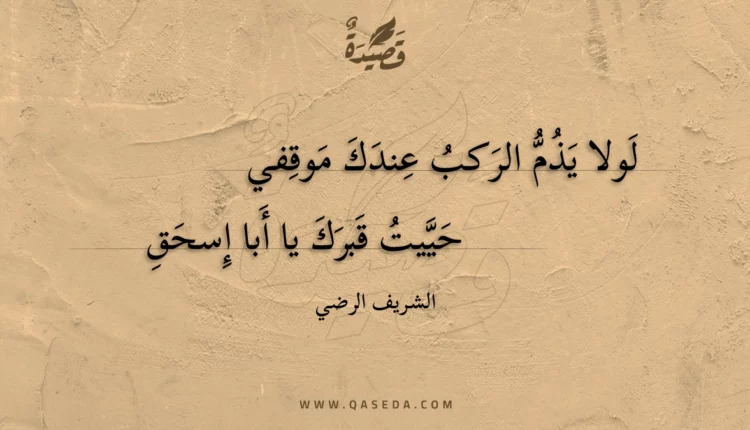 قَصِيدَةٌ
لَولا يَذُمُّ الرَكبُ عِندَكَ مَوقِفي
حَيَّيتُ قَبرَكَ يا أَبا إِسحَقِ
الشريف الرضي
WWW.QASEDA.COM